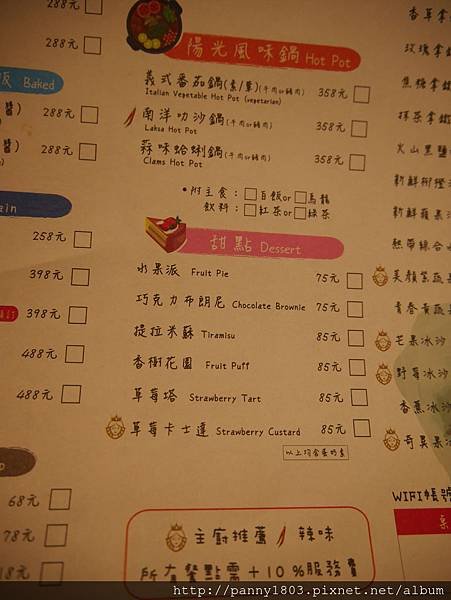 288元
288元
飯 Baked
醬) 288元
醬) 288元
ain
258元
398元
398元
488元
488元
68元
78元
陽光風味鍋 Hot Pot
義式番茄鍋(素/葷)(牛肉or豬肉) 358元
Italian Vegetable Hot Pot (vegetarian)
南洋叻沙鍋(牛肉or豬肉) 358元
Laksa Hot Pot
蒜味蛤蜊鍋(牛肉or豬肉) 358元
Clams Hot Pot
•附主食：□白飯or□烏龍
飲料：□紅茶or□綠茶
甜點 Dessert
水果派 Fruit Pie 75元
巧克力布朗尼 Chocolate Brownie 75元
提拉米蘇 Tiramisu 85元
香榭花園 Fruit Puff 85元
草莓塔 Strawberry Tart 85元
草莓卡士達 Strawberry Custard 85元
以上均含蛋奶素
主廚推薦 辣味
所有餐點需+10%服務費
香草拿鐵
玫瑰拿鐵
焦糖拿鐵
抹茶拿鐵
火山黑鹽
新鮮柳橙
新鮮蘋果
熱帶綜合
美顏紫蔬
青春黃蔬
芒果冰沙
野莓冰沙
香蕉冰沙
奇異果冰
WIFI帳號
http://panny1803.pixnet.net/album